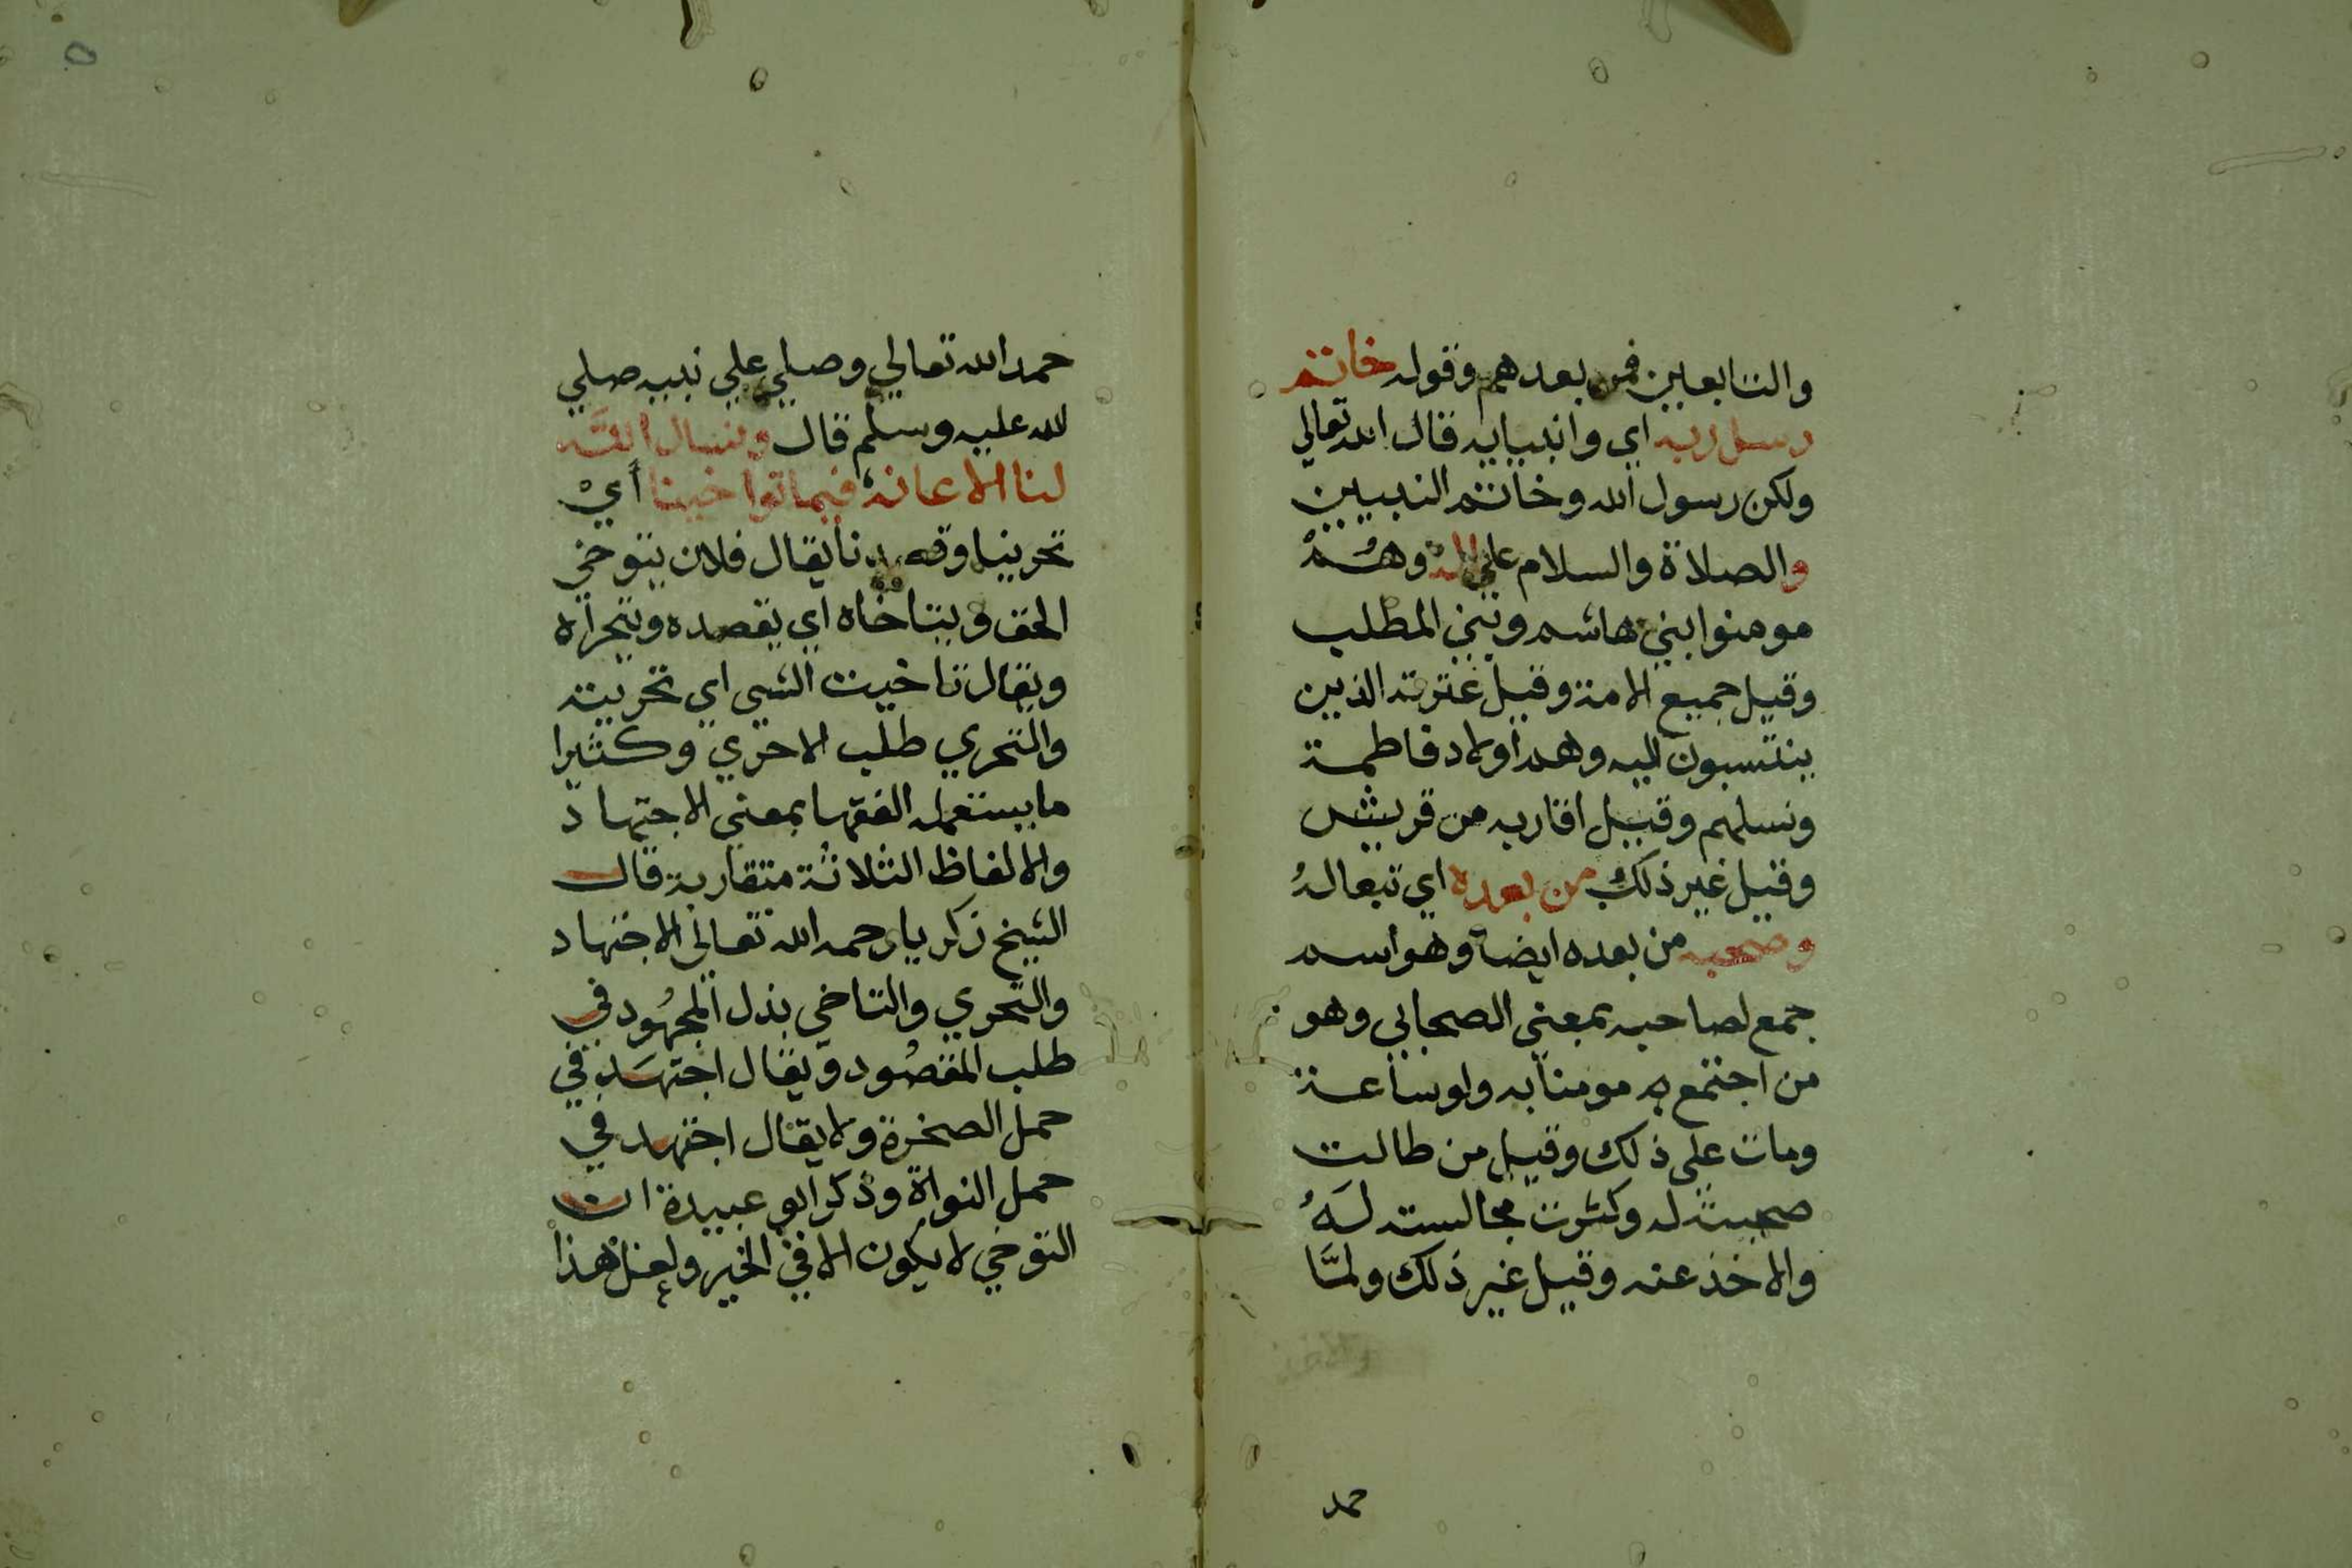 والتابعين فمن بعدهم وقوله خاتم
رسل ربه اي وانبيايه قال الله تعالي
ولكن رسول الله وخاتم النبيين
والصلاة والسلام علي اله وهم
مومنوا بني هاشم وبني المطلب
وقيل جميع الامة وقيل عترته الذين
ينتسبون اليه وهم اولاد فاطمة
ونسلهم وقيل اقاربه من قريش
وقيل غير ذلك من بعده اي تبعا له
وصحبه من بعده ايضا وهو اسم
جمع لصاحب بمعني الصحابي وهو
من اجتمع به مومنا به ولو ساعة
ومات علي ذلك وقيل من طالت
صحبته له وكثرت مجالسته له
والاخذ عنه وقيل غير ذلك ولمّا
حمد
حمد الله تعالي وصلي علي نبيه صلي
لله عليه وسلم قال ونسال الله
لنا الاعانة فيما توا خينا أيْ
تحرينا وقصدنا يقال فلان يتوخي
الحق ويتاخاه اي يقصده ويتحراه
ويقال تاخيت الشي اي تحريته
والتحري طلب الاحري وكثيرا
ما يستعمله الفقها بمعني الاجتهاد
والالفاظ الثلاثة متقاربة قال
الشيخ زكريا رحمه الله تعالي الاجتهاد
والتحري والتاخي بذل المجهُود في
طلب المقصُود ويقال اجتهَد في
حمل الصخرة ولا يقال اجتهد في
حمل النواة وذكر ابو عبيدة ان
التوخي لا يكون الا في الخير ولعل هذا
٥